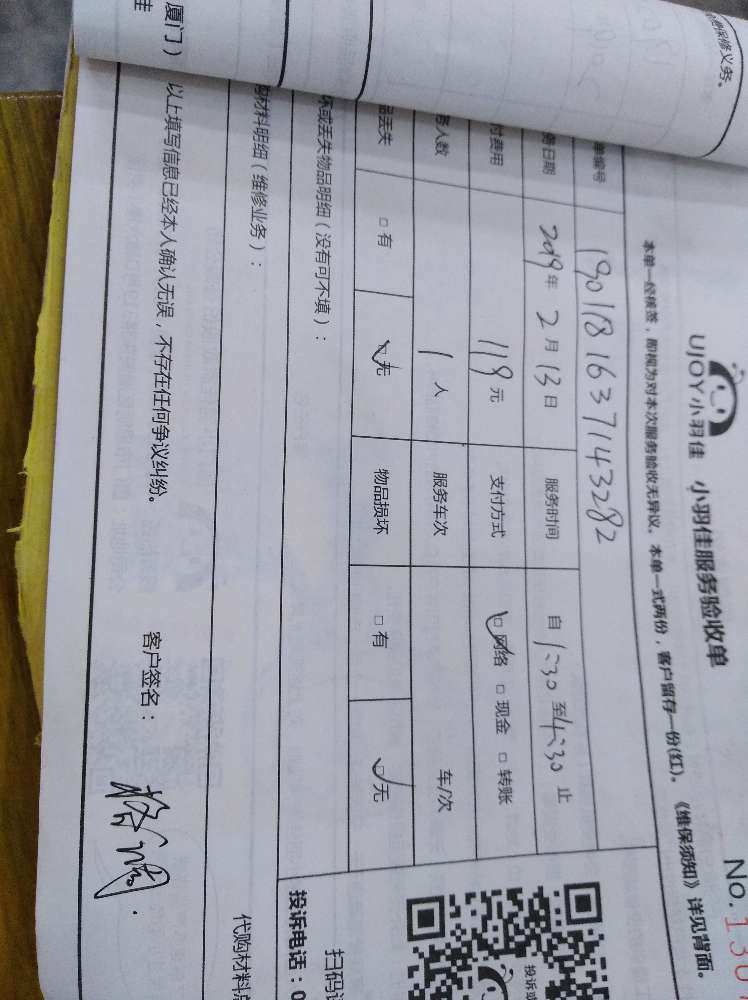 UJOY小羽佳 小羽佳服务验收单
No. 130
本单一经核签，即视为对本次服务验收无异议。本单一式两份，客户留存一份(红)。《维保须知》详见背面。
单编号 1901181637143282
务日期 2019年2月13日 服务时间 自1:30至4:30止
付费用 119元 支付方式 □网络 □现金 □转账
务人数 1人 服务车次 车/次
品丢失 □有 □无 物品损坏 □有 □无
坏或丢失物品明细（没有可不填）：
购材料明细（维修业务）：
代购材料总
以上填写信息已经本人确认无误，不存在任何争议纠纷。 客户签名：
扫码
投诉电话：0
投诉
保修义务。
厦门）
佳